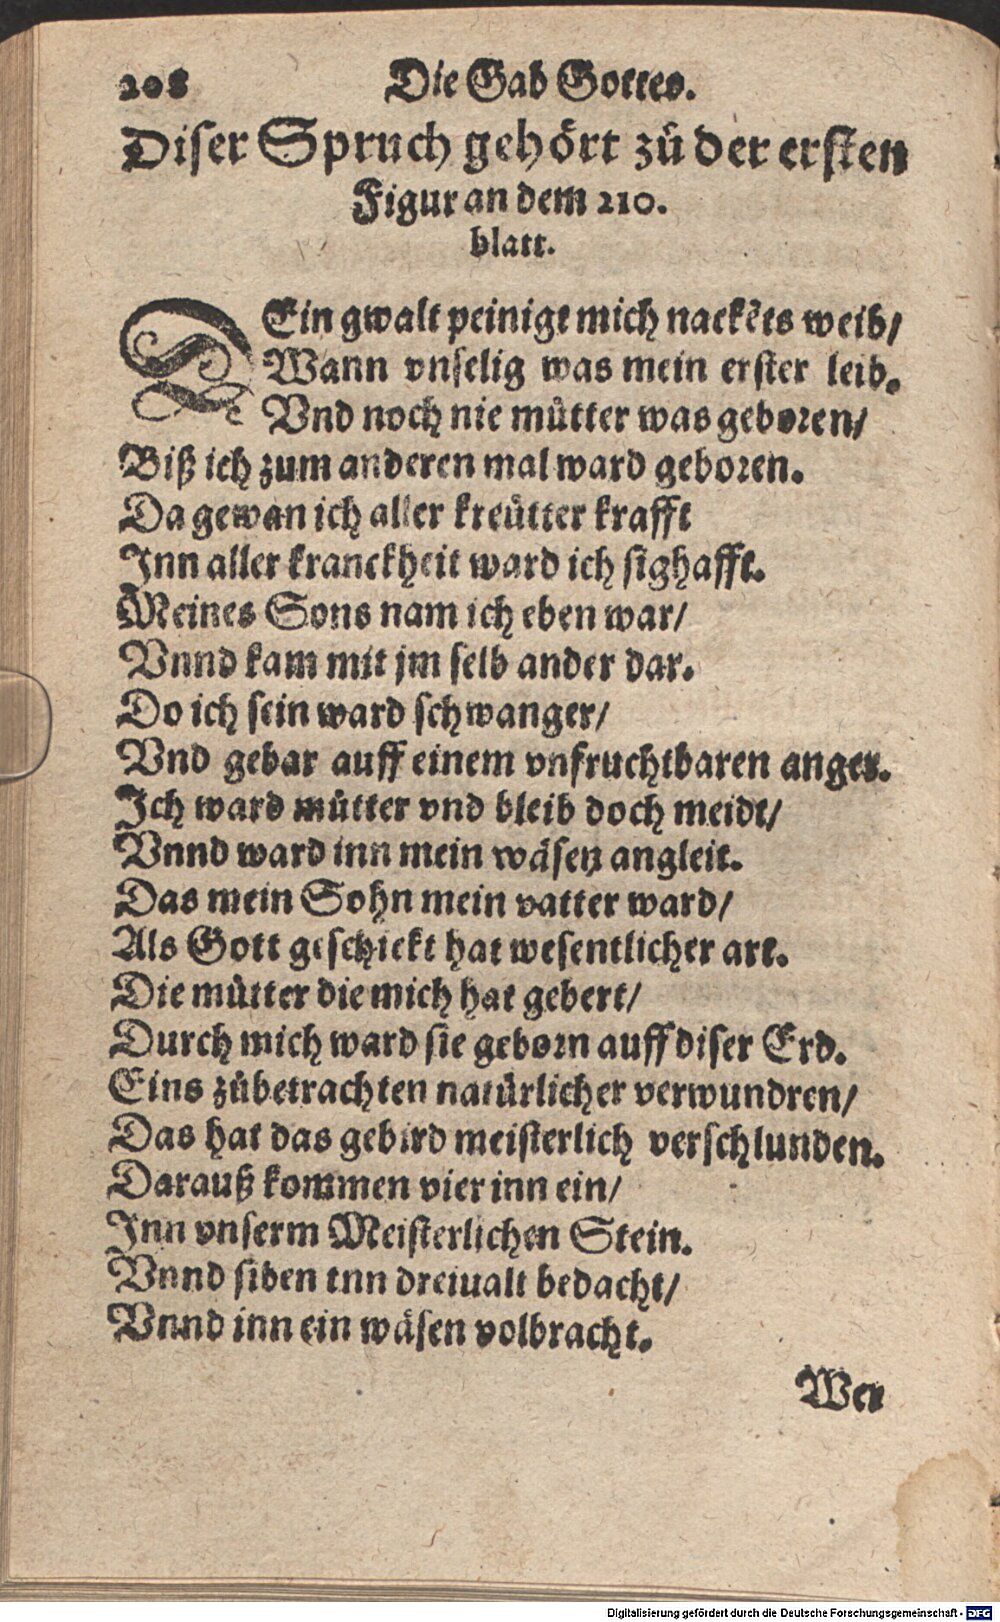 208 Die Gab Gottes.
Diser Spruch gehört zů der ersten
Figur an dem 210.
blatt.
Ein gwalt peinigt mich nackẽts weib/
Wann vnselig was mein erster leib.
Vnd noch nie můtter was geboren/
Biß ich zum anderen mal ward geboren.
Da gewan ich aller kreütter krafft
Inn aller kranckheit ward ich sighafft.
Meines Sons nam ich eben war/
Vnnd kam mit jm selb ander dar.
Do ich sein ward schwanger/
Vnd gebar auff einem vnfruchtbaren anger.
Ich ward můtter vnd bleib doch meidt/
Vnnd ward inn mein wäsen angleit.
Das mein Sohn mein vatter ward/
Als Gott geschickt hat wesentlicher art.
Die můtter die mich hat gebert/
Durch mich ward sie geborn auff diser Erd.
Eins zůbetrachten natürlicher verwundren/
Das hat das gebird meisterlich verschlunden.
Darauß kommen vier inn ein/
Inn vnserm Meisterlichen Stein.
Vnnd siben inn dreiualt bedacht/
Vnnd inn ein wäsen volbracht.
Wer
Digitalisierung gefördert durch die Deutsche Forschungsgemeinschaft - DFG